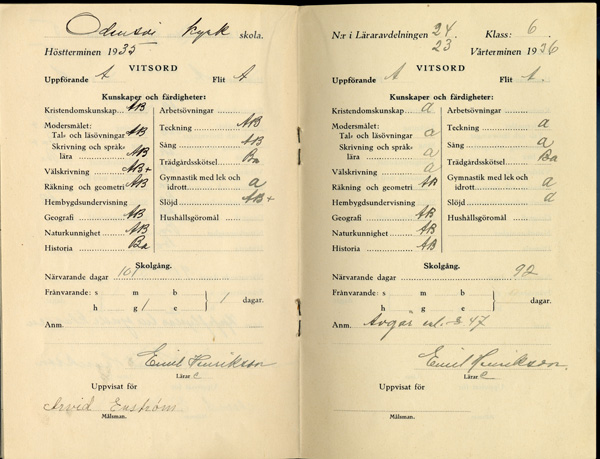 Odensvi kyrk skola.
Höstterminen 1935
VITSORD
Uppförande A Flit A
Kunskaper och färdigheter:
Kristendomskunskap AB Arbetsövningar
Modersmålet: Teckning AB
Tal- och läsövningar AB
Skrivning och språk- Sång AB
lära AB Trädgårdsskötsel Ba
Välskrivning AB+ Gymnastik med lek och
Räkning och geometri AB idrott a
Hembygdsundervisning Slöjd AB+
Geografi AB Hushållsgöromål
Naturkunnighet AB
Historia Ba
Skolgång.
Närvarande dagar 101
Frånvarande: s m b
h g 1 e } 1 dagar.
Anm.
Emil Henrikson
Lärare
Uppvisat för
Arvid Enström
Målsman.
N:r i Läraravdelningen 24 Klass: 6
23 Vårterminen 1936
VITSORD
Uppförande A Flit A.
Kunskaper och färdigheter:
Kristendomskunskap a Arbetsövningar
Modersmålet: Teckning a
Tal- och läsövningar a
Skrivning och språk- Sång a
lära a Trädgårdsskötsel Ba
Välskrivning a Gymnastik med lek och
Räkning och geometri AB idrott a
Hembygdsundervisning Slöjd a
Geografi AB Hushållsgöromål
Naturkunnighet AB
Historia AB
Skolgång.
Närvarande dagar 92
Frånvarande: s m b
h g e } dagar.
Anm. Avgår enl. § 47
Emil Henrikson.
Lärare
Uppvisat för
Målsman.